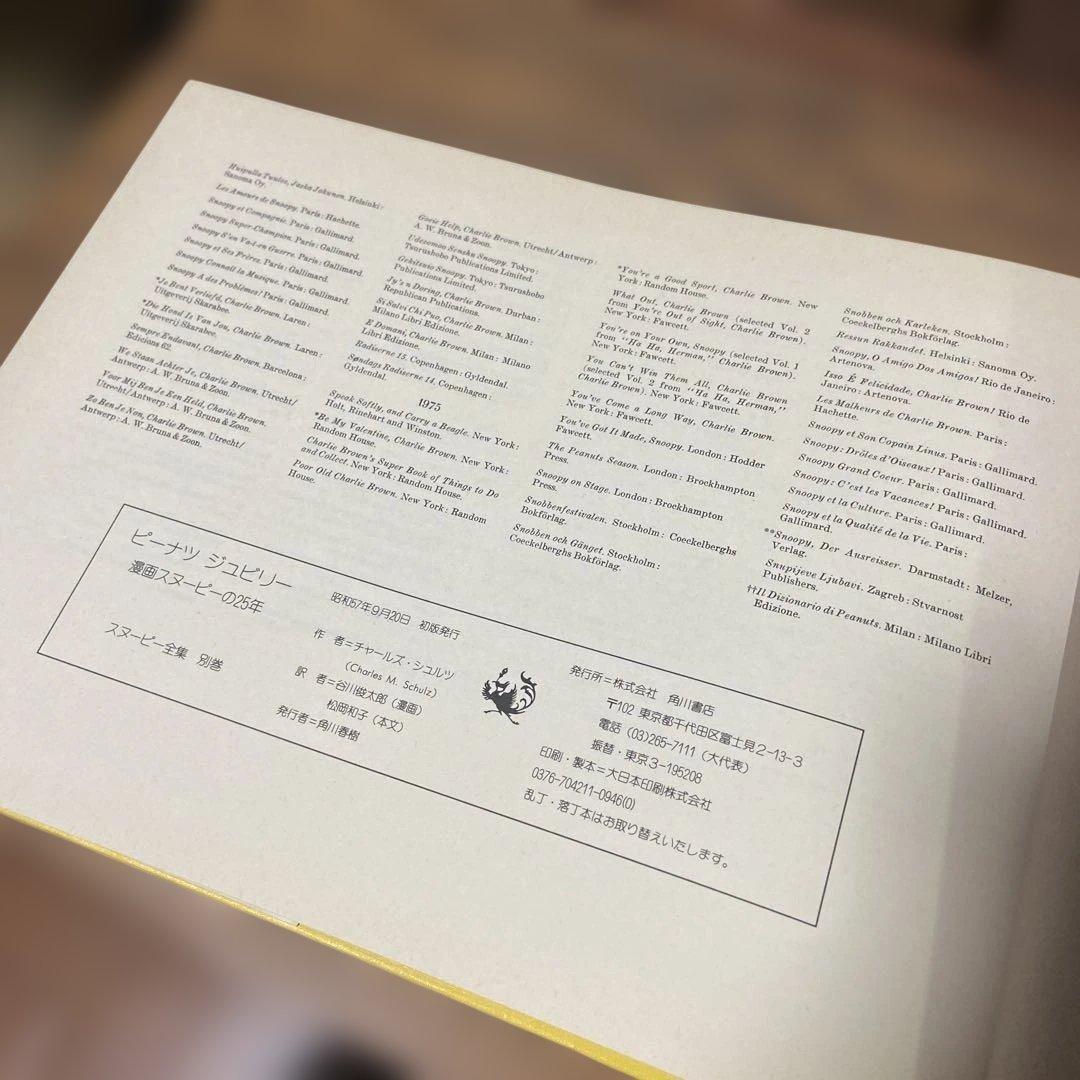 Huipulla Tuulee, Jaska Jokunen. Helsinki:
Sanoma Oy.
Les Amours de Snoopy. Paris: Hachette.
Snoopy et Compagnie. Paris: Gallimard.
Snoopy Super-Champion. Paris: Gallimard.
Snoopy S'en Va-t-en Guerre. Paris: Gallimard.
Snoopy et Ses Frères. Paris: Gallimard.
Snoopy Connaît la Musique. Paris: Gallimard.
Snoopy A des Problèmes! Paris: Gallimard.
*Je Bent Verliefd, Charlie Brown. Laren:
Uitgeverij Skarabee.
*Die Hond Is Van Jou, Charlie Brown. Laren:
Uitgeverij Skarabee.
Sempre Endavant, Charlie Brown. Barcelona:
Edicions 62.
We Staan Achter Je, Charlie Brown. Utrecht/
Antwerp: A. W. Bruna & Zoon.
Voor Mij Ben Je Een Held, Charlie Brown.
Utrecht/Antwerp: A. W. Bruna & Zoon.
Zo Ben Je Nou, Charlie Brown. Utrecht/
Antwerp: A. W. Bruna & Zoon.
Goeie Help, Charlie Brown. Utrecht/Antwerp:
A. W. Bruna & Zoon.
Udezomoo Senshu Snoopy. Tokyo:
Tsurushobo Publications Limited.
Gekitsuio Snoopy. Tokyo: Tsurushobo
Publications Limited.
Jy's n Doring, Charlie Brown. Durban:
Republican Publications.
Si Salvi Chi Puo, Charlie Brown. Milan:
Milano Libri Edizione.
E Domani, Charlie Brown. Milan: Milano
Libri Edizione.
Radiserne 15. Copenhagen: Gyldendal.
Søndags Radiserne 14. Copenhagen:
Gyldendal.
1975
Speak Softly, and Carry a Beagle. New York:
Holt, Rinehart and Winston.
*Be My Valentine, Charlie Brown. New York:
Random House.
Charlie Brown's Super Book of Things to Do
and Collect. New York: Random House.
Poor Old Charlie Brown. New York: Random
House.
*You're a Good Sport, Charlie Brown. New
York: Random House.
What Out, Charlie Brown (selected Vol. 2
from You're Out of Sight, Charlie Brown).
New York: Fawcett.
You're on Your Own, Snoopy (selected Vol. 1
from "Ha Ha, Herman," Charlie Brown).
New York: Fawcett.
You Can't Win Them All, Charlie Brown
(selected Vol. 2 from "Ha Ha, Herman,"
Charlie Brown). New York: Fawcett.
You've Come a Long Way, Charlie Brown.
New York: Fawcett.
You've Got It Made, Snoopy. London: Hodder
Fawcett.
The Peanuts Season. London: Brockhampton
Press.
Snoopy on Stage. London: Brockhampton
Press.
Snobbenfestivalen. Stockholm: Coeckelberghs
Bokförlag.
Snobben och Gänget. Stockholm:
Coeckelberghs Bokförlag.
Snobben och Karleken. Stockholm:
Coeckelberghs Bokförlag.
Ressun Rakkaudet. Helsinki: Sanoma Oy.
Snoopy, O Amigo Dos Amigos! Rio de Janeiro:
Artenova.
Isso É Felicidade, Charlie Brown! Rio de
Janeiro: Artenova.
Les Malheurs de Charlie Brown. Paris:
Hachette.
Snoopy et Son Copain Linus. Paris: Gallimard.
Snoopy: Drôles d'Oiseaux! Paris: Gallimard.
Snoopy Grand Coeur. Paris: Gallimard.
Snoopy: C'est les Vacances! Paris: Gallimard.
Snoopy et la Culture. Paris: Gallimard.
Snoopy et la Qualité de la Vie. Paris:
Gallimard.
**Snoopy, Der Ausreisser. Darmstadt: Melzer,
Verlag.
Snupijeve Ljubavi. Zagreb: Stvarnost
Publishers.
††Il Dizionario di Peanuts. Milan: Milano Libri
Edizione.
ピーナツ ジュビリー
漫画スヌーピーの25年
スヌーピー全集 別巻
昭和57年9月20日 初版発行
作 者=チャールズ・シュルツ
(Charles M. Schulz)
訳 者=谷川俊太郎(漫画)
松岡和子(本文)
発行者=角川春樹
発行所=株式会社 角川書店
〒102 東京都千代田区富士見2-13-3
電話 (03)265-7111(大代表)
振替・東京3-195208
印刷・製本=大日本印刷株式会社
0376-704211-0946(0)
乱丁・落丁本はお取り替えいたします。